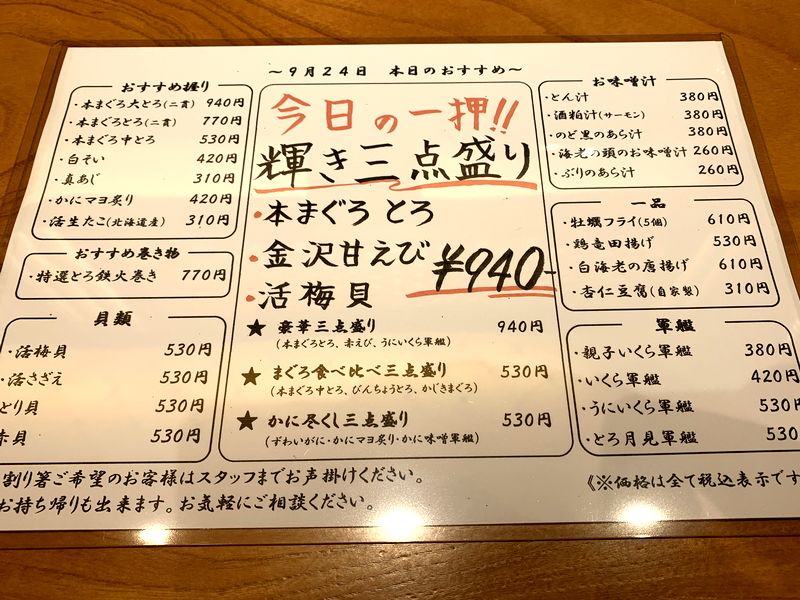 ～9月24日 本日のおすすめ～
おすすめ握り
・本まぐろ大とろ(二貫) 940円
・本まぐろとろ(二貫) 770円
・本まぐろ中とろ 530円
・白そい 420円
・真あじ 310円
・かにマヨ炙り 420円
・活生たこ(北海道産) 310円
おすすめ巻き物
・特選とろ鉄火巻き 770円
貝類
・活梅貝 530円
・活さざえ 530円
とり貝 530円
赤貝 530円
今日の一押!!
輝き三点盛り
・本まぐろとろ
・金沢甘えび
・活梅貝
¥940-
★ 豪華三点盛り 940円
(本まぐろとろ、赤えび、うにいくら軍艦)
★ まぐろ食べ比べ三点盛り 530円
(本まぐろ中とろ、びんちょうとろ、かじきまぐろ)
★ かに尽くし三点盛り 530円
(ずわいがに・かにマヨ炙り・かに味噌軍艦)
お味噌汁
・とん汁 380円
・酒粕汁(サーモン) 380円
・のど黒のあら汁 380円
・海老の頭のお味噌汁 260円
・ぶりのあら汁 260円
一品
・牡蠣フライ(5個) 610円
・鶏竜田揚げ 530円
・白海老の唐揚げ 610円
・杏仁豆腐(自家製) 310円
軍艦
・親子いくら軍艦 380円
・いくら軍艦 420円
・うにいくら軍艦 530円
・とろ月見軍艦 530
割り箸ご希望のお客様はスタッフまでお声掛けください。
お持ち帰りも出来ます。お気軽にご相談ください。
《※価格は全て税込表示です